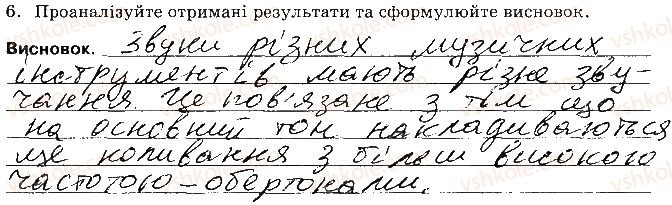 6. Проаналізуйте отримані результати та сформулюйте висновок.
Висновок. Звуки різних музичних
інструментів мають різне зву-
чання. Це пов'язане з тім що
на основний тон накладиваються
ще коливання з більш високого
частотою – обертонами.